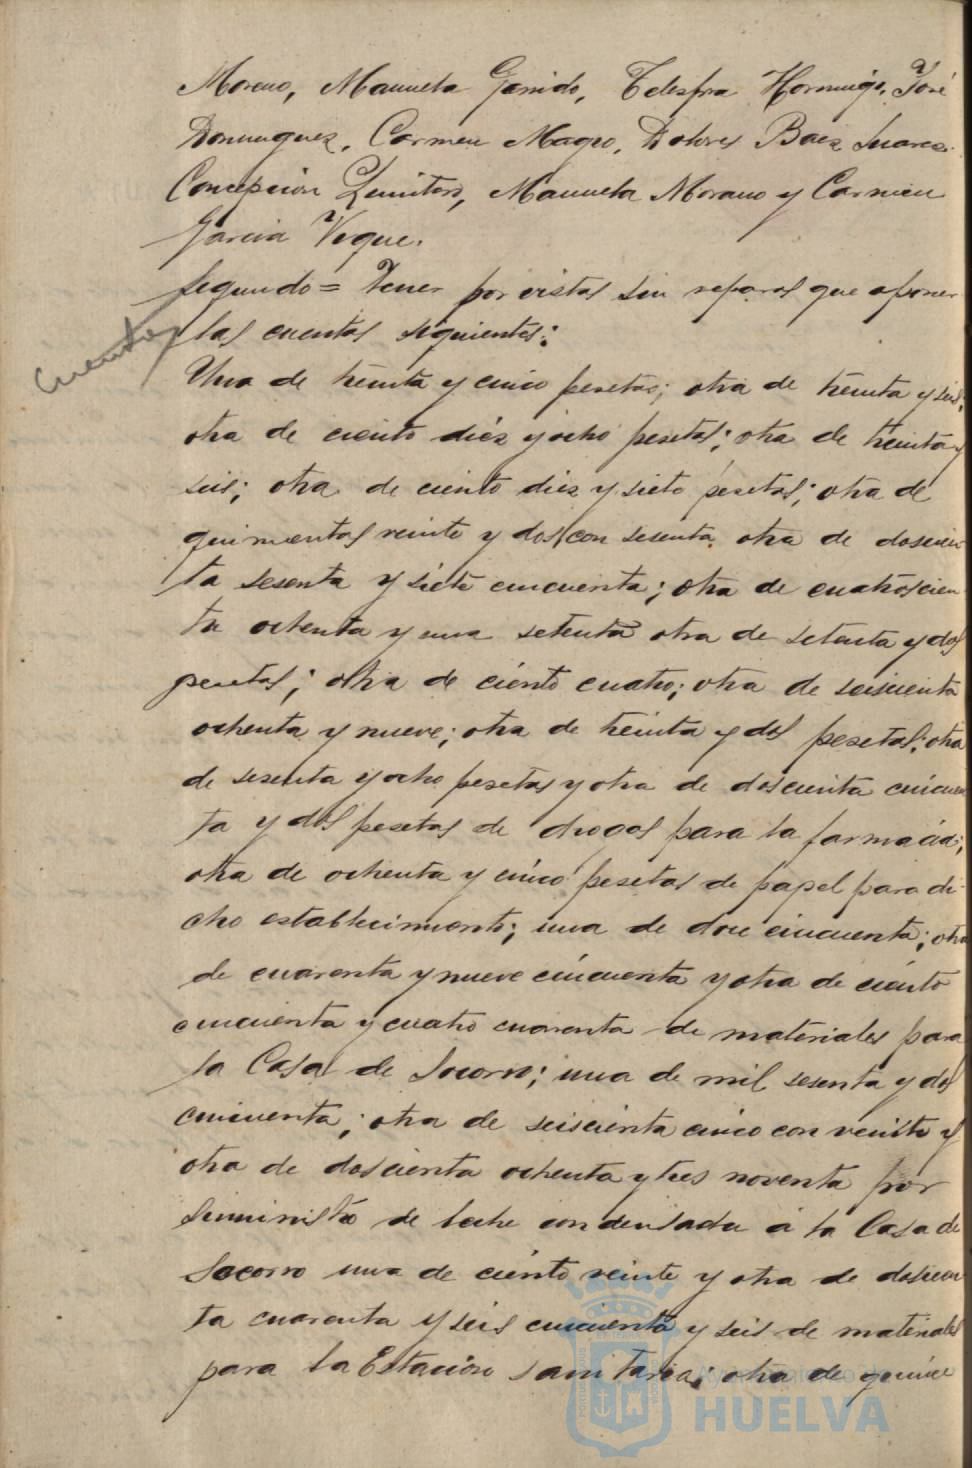 Moreno, Manuela Garrido, Telesfra Hormigo, José
Dominguez, Carmen Magro, Dolores Baez Suarez.
Concepción Quintero, Manuela Morano y Carmen
Garcia Vique.
Segundo = Tener por vistas sin reparos que oponer
Cuentas
las cuentas siguientes:
Una de treinta y cinco pesetas; otra de treinta y seis;
otra de ciento diez y ocho pesetas; otra de treinta y
seis; otra de ciento diez y siete pesetas; otra de
quinientas veinte y dos con sesenta otra de doscien
ta sesenta y siete cincuenta; otra de cuatroscien
ta ochenta y una setenta otra de setenta y dos
pesetas; otra de ciento cuatro; otra de seiscienta
ochenta y nueve; otra de treinta y dos pesetas; otra
de sesenta y ocho pesetas y otra de doscienta cincuen
ta y dos pesetas de drogas para la farmacia;
otra de ochenta y cinco pesetas de papel para di-
cho establecimiento; una de doce cincuenta; otra
de cuarenta y nueve cincuenta y otra de ciento
cincuenta y cuatro cuarenta de materiales para
la Casa de Socorro; una de mil sesenta y dos
cincuenta; otra de seiscienta cinco con veinte y
otra de doscienta ochenta y tres noventa por
suministro de leche condensada á la Casa de
Socorro una de ciento veinte y otra de doscien
ta cuarenta y seis cincuenta y seis de materiales
para la Estación sanitaria; otra de quince
Ayuntamiento de
HUELVA